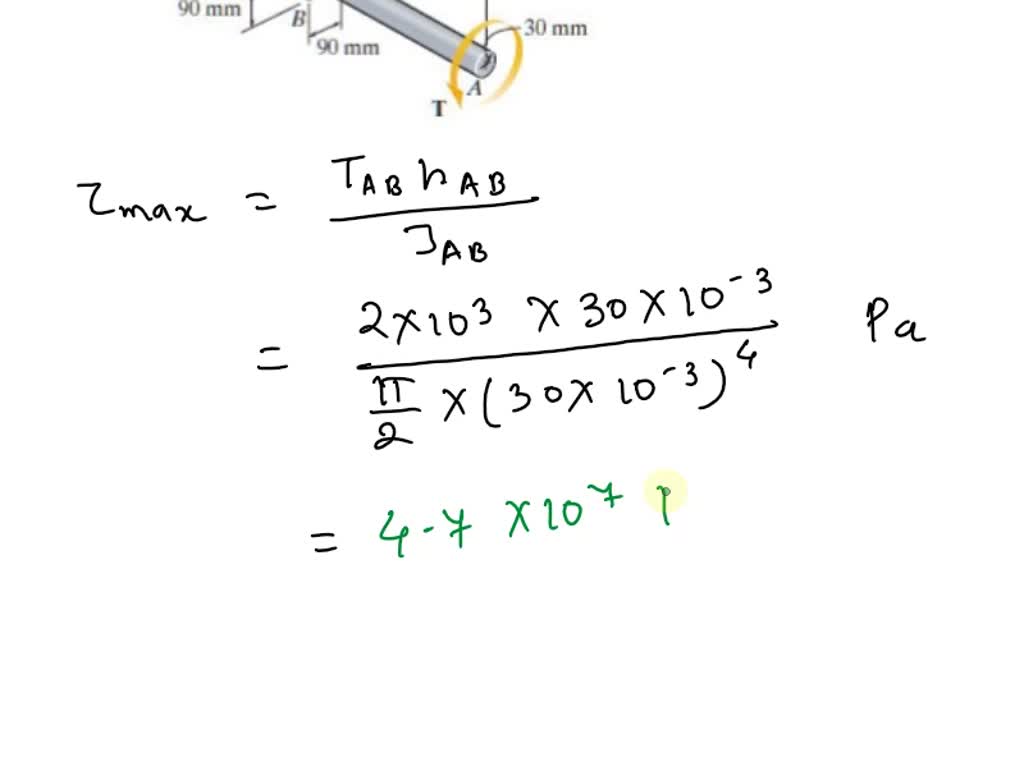 90 mm
B
90 mm
30 mm
A
T
τmax = TAB rAB / JAB
= 2×10³ × 30×10⁻³ / π/2 × (30×10⁻³)⁴ Pa
= 4.7 ×10⁷ P